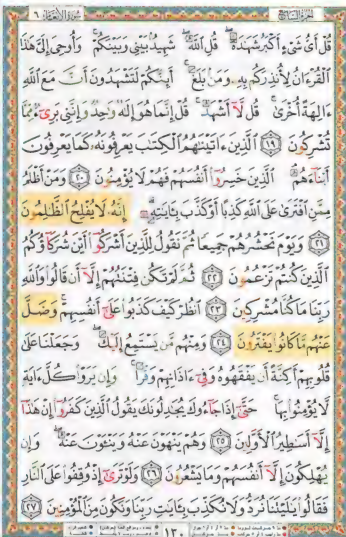 الجزء السابع سورة الأنعام ٦
قُلْ أَيُّ شَيْءٍ أَكْبَرُ شَهَٰدَةً ۖ قُلِ ٱللَّهُ ۖ شَهِيدٌۢ بَيْنِي وَبَيْنَكُمْ ۚ وَأُوحِيَ إِلَيَّ هَٰذَا
ٱلْقُرْءَانُ لِأُنذِرَكُم بِهِۦ وَمَنۢ بَلَغَ ۚ أَئِنَّكُمْ لَتَشْهَدُونَ أَنَّ مَعَ ٱللَّهِ
ءَالِهَةً أُخْرَىٰ ۚ قُل لَّآ أَشْهَدُ ۚ قُلْ إِنَّمَا هُوَ إِلَٰهٌ وَٰحِدٌ وَإِنَّنِي بَرِيٓءٌ مِّمَّا
تُشْرِكُونَ ١٩ ٱلَّذِينَ ءَاتَيْنَٰهُمُ ٱلْكِتَٰبَ يَعْرِفُونَهُۥ كَمَا يَعْرِفُونَ
أَبْنَآءَهُمُ ۘ ٱلَّذِينَ خَسِرُوٓا۟ أَنفُسَهُمْ فَهُمْ لَا يُؤْمِنُونَ ٢٠ وَمَنْ أَظْلَمُ
مِمَّنِ ٱفْتَرَىٰ عَلَى ٱللَّهِ كَذِبًا أَوْ كَذَّبَ بِـَٔايَٰتِهِۦٓ ۗ إِنَّهُۥ لَا يُفْلِحُ ٱلظَّٰلِمُونَ
٢١ وَيَوْمَ نَحْشُرُهُمْ جَمِيعًا ثُمَّ نَقُولُ لِلَّذِينَ أَشْرَكُوٓا۟ أَيْنَ شُرَكَآؤُكُمُ
ٱلَّذِينَ كُنتُمْ تَزْعُمُونَ ٢٢ ثُمَّ لَمْ تَكُن فِتْنَتُهُمْ إِلَّآ أَن قَالُوا۟ وَٱللَّهِ
رَبِّنَا مَا كُنَّا مُشْرِكِينَ ٢٣ ٱنظُرْ كَيْفَ كَذَبُوا۟ عَلَىٰٓ أَنفُسِهِمْ ۚ وَضَلَّ
عَنْهُم مَّا كَانُوا۟ يَفْتَرُونَ ٢٤ وَمِنْهُم مَّن يَسْتَمِعُ إِلَيْكَ ۖ وَجَعَلْنَا عَلَىٰ
قُلُوبِهِمْ أَكِنَّةً أَن يَفْقَهُوهُ وَفِيٓ ءَاذَانِهِمْ وَقْرًا ۚ وَإِن يَرَوْا۟ كُلَّ ءَايَةٍ
لَّا يُؤْمِنُوا۟ بِهَا ۚ حَتَّىٰٓ إِذَا جَآءُوكَ يُجَٰدِلُونَكَ يَقُولُ ٱلَّذِينَ كَفَرُوٓا۟ إِنْ هَٰذَآ
إِلَّآ أَسَٰطِيرُ ٱلْأَوَّلِينَ ٢٥ وَهُمْ يَنْهَوْنَ عَنْهُ وَيَنْـَٔوْنَ عَنْهُ ۖ وَإِن
يُهْلِكُونَ إِلَّآ أَنفُسَهُمْ وَمَا يَشْعُرُونَ ٢٦ وَلَوْ تَرَىٰٓ إِذْ وُقِفُوا۟ عَلَى ٱلنَّارِ
فَقَالُوا۟ يَٰلَيْتَنَا نُرَدُّ وَلَا نُكَذِّبَ بِـَٔايَٰتِ رَبِّنَا وَنَكُونَ مِنَ ٱلْمُؤْمِنِينَ ٢٧
١٣٠